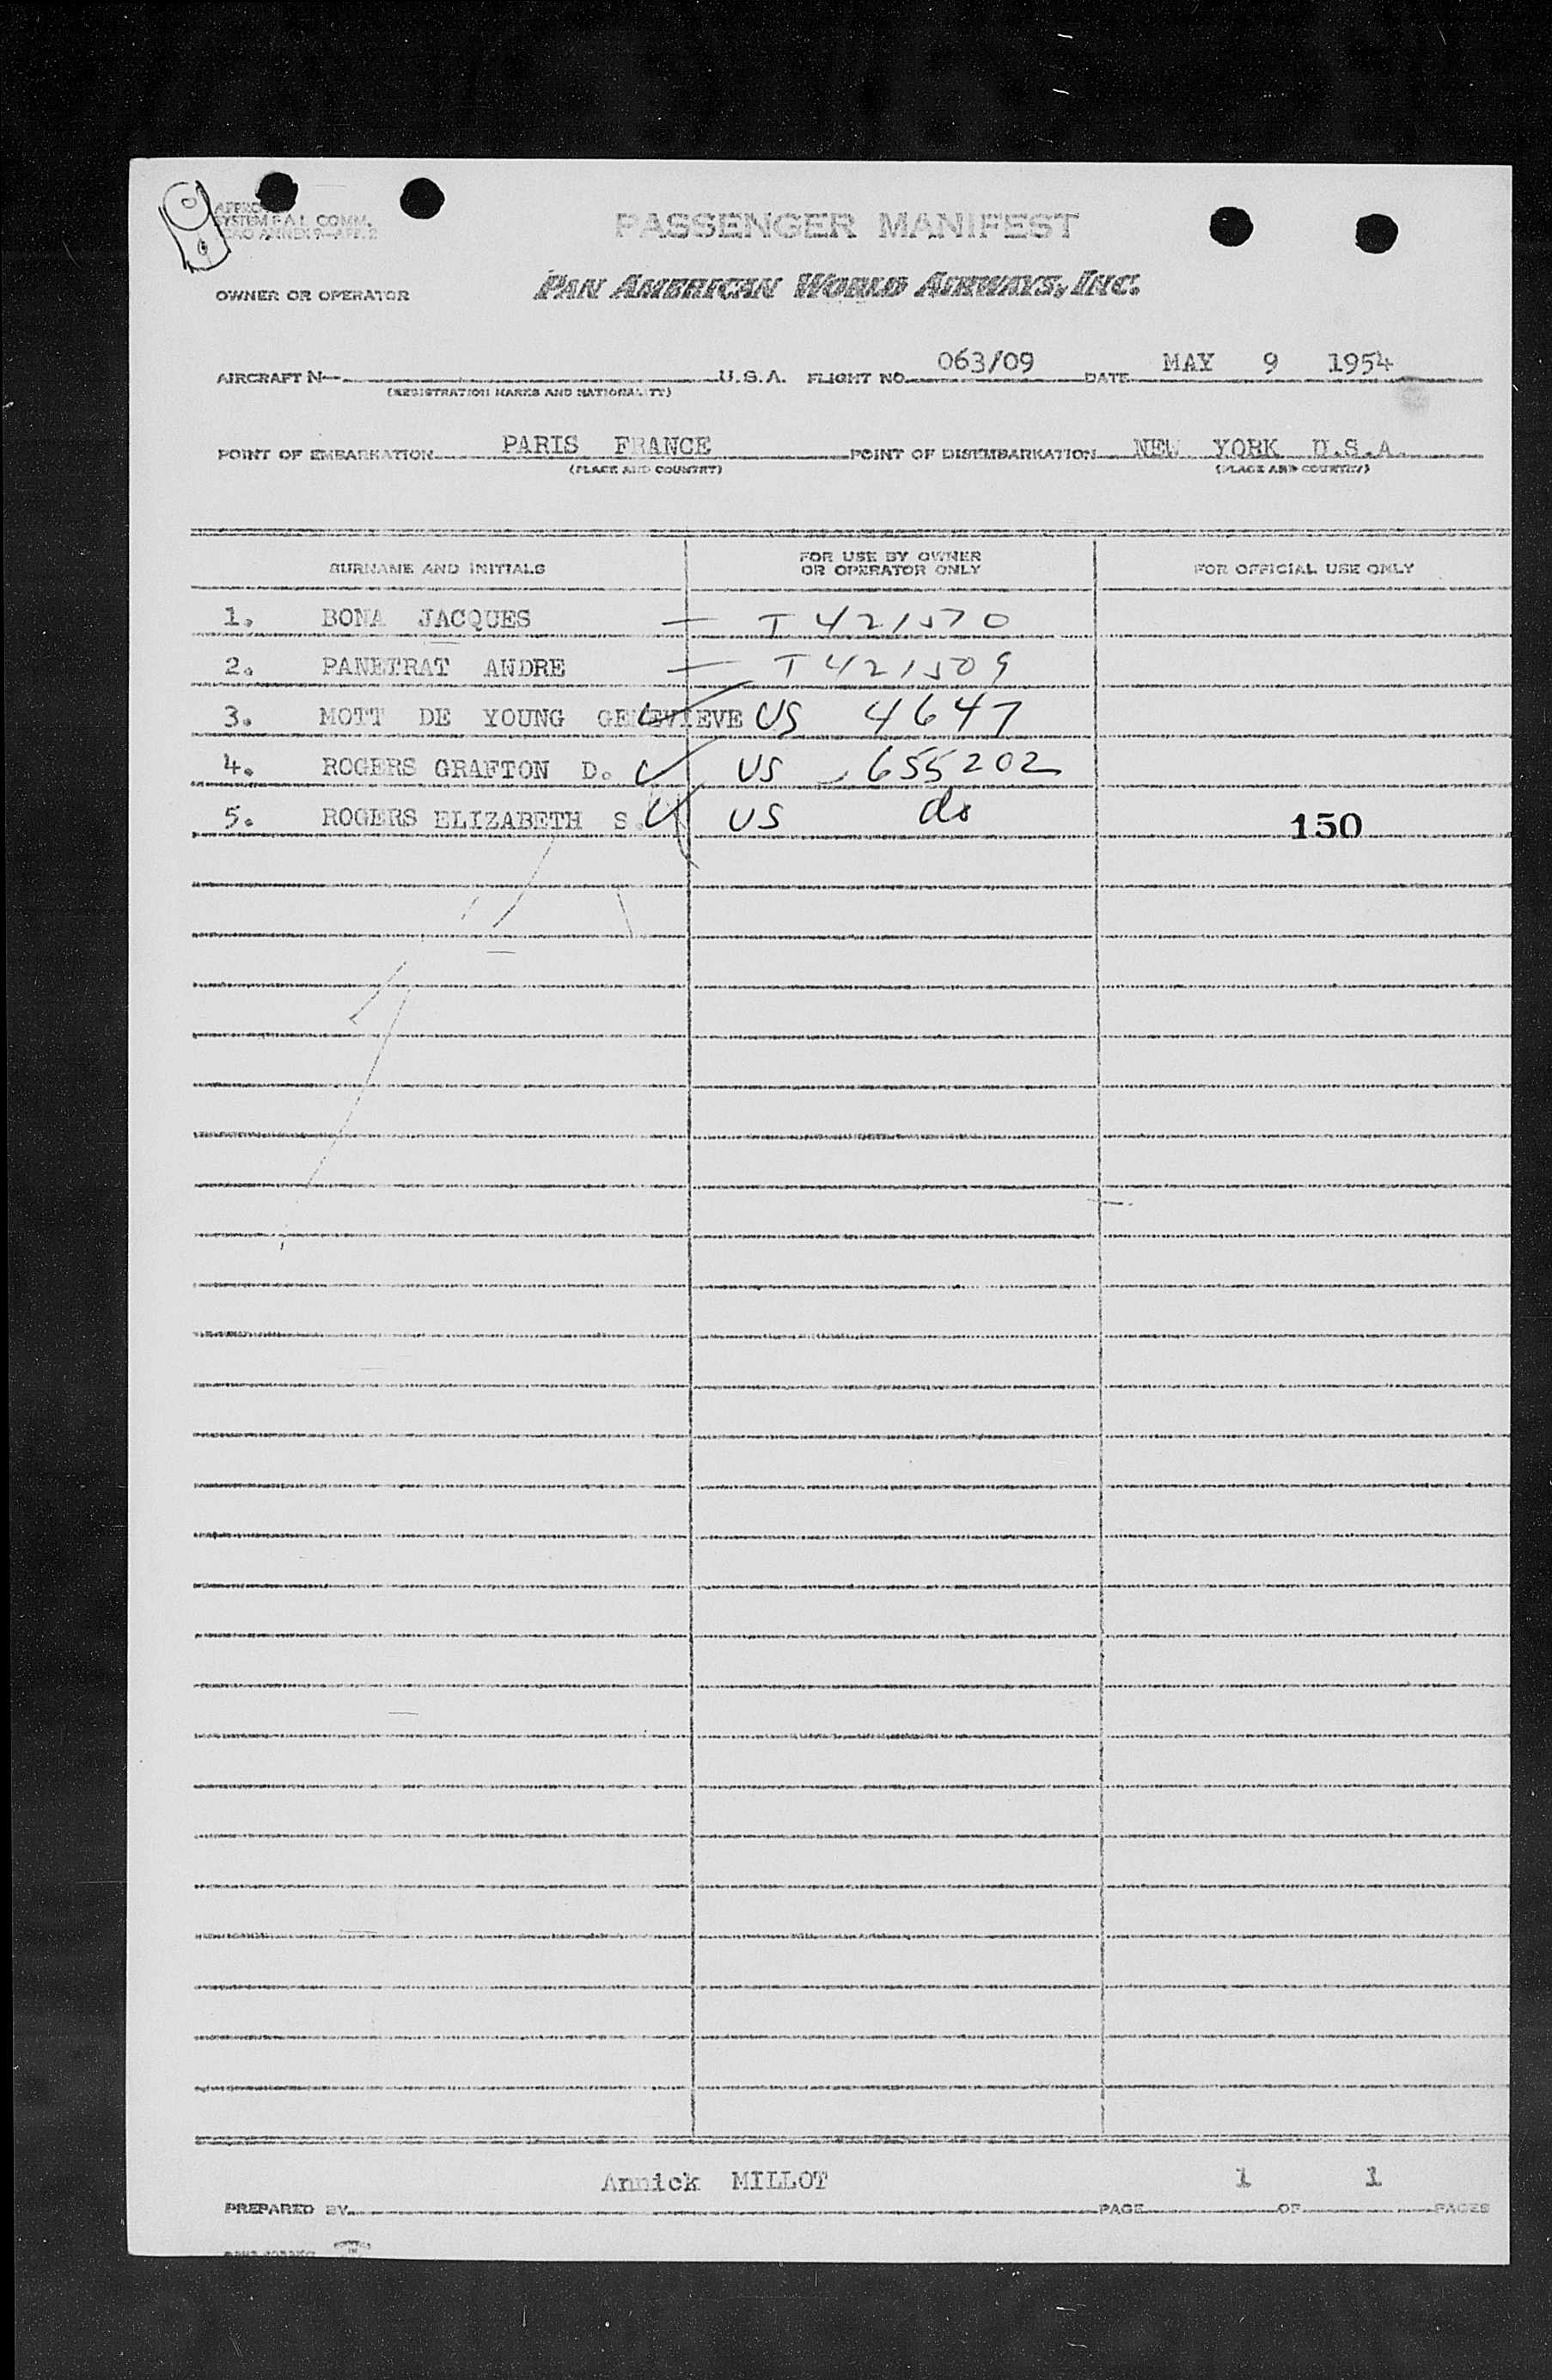 SYSTEM F.A.L. COMM.
ICAO ANNEX 9—APP. 2
PASSENGER MANIFEST
OWNER OR OPERATOR PAN AMERICAN WORLD AIRWAYS, INC.
AIRCRAFT N— U.S.A. FLIGHT NO. 063/09 DATE MAY 9 1954
(REGISTRATION MARKS AND NATIONALITY)
POINT OF EMBARKATION PARIS FRANCE POINT OF DISEMBARKATION NEW YORK U.S.A.
(PLACE AND COUNTRY) (PLACE AND COUNTRY)
SURNAME AND INITIALS FOR USE BY OWNER OR OPERATOR ONLY FOR OFFICIAL USE ONLY
1. BONA JACQUES — T 421570
2. PANETRAT ANDRE — T 421509
3. MOTT DE YOUNG GENEVIEVE US 4647
4. ROGERS GRAFTON D. US 655202
5. ROGERS ELIZABETH S. US do 150
Annick MILLOT 1 1
PREPARED BY PAGE OF PAGES